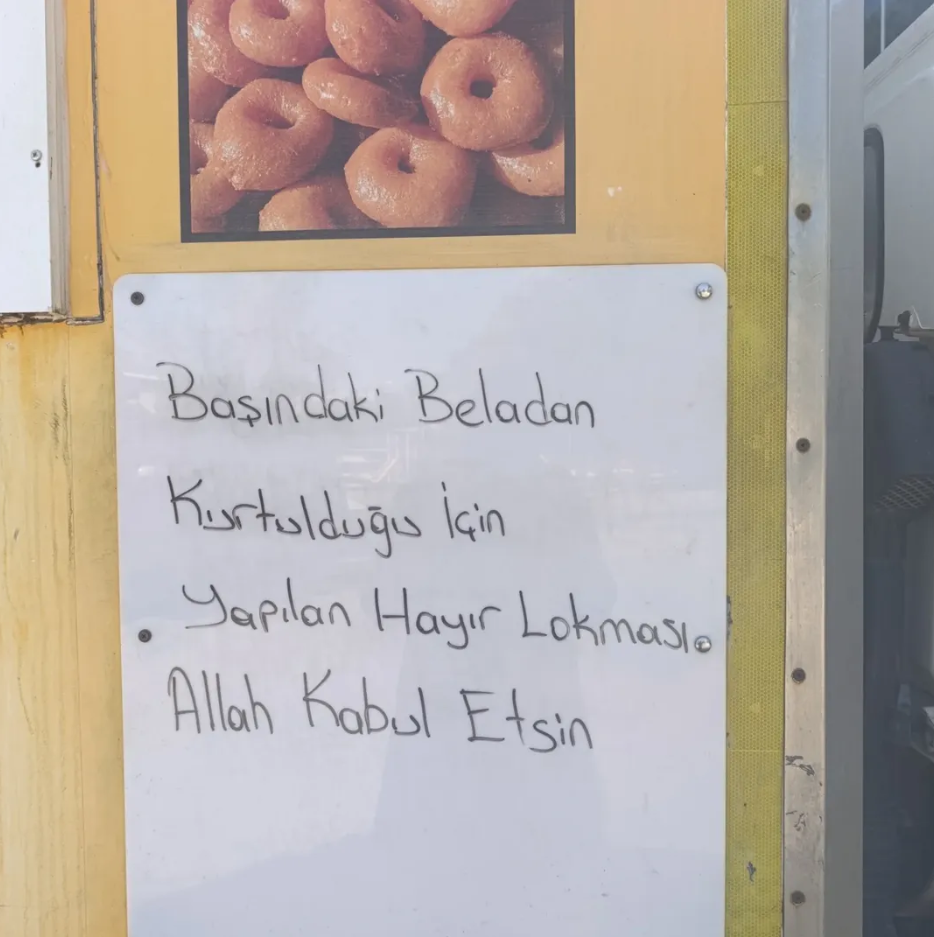 Başındaki Beladan
Kurtulduğu İçin
Yapılan Hayır Lokması
Allah Kabul Etsin